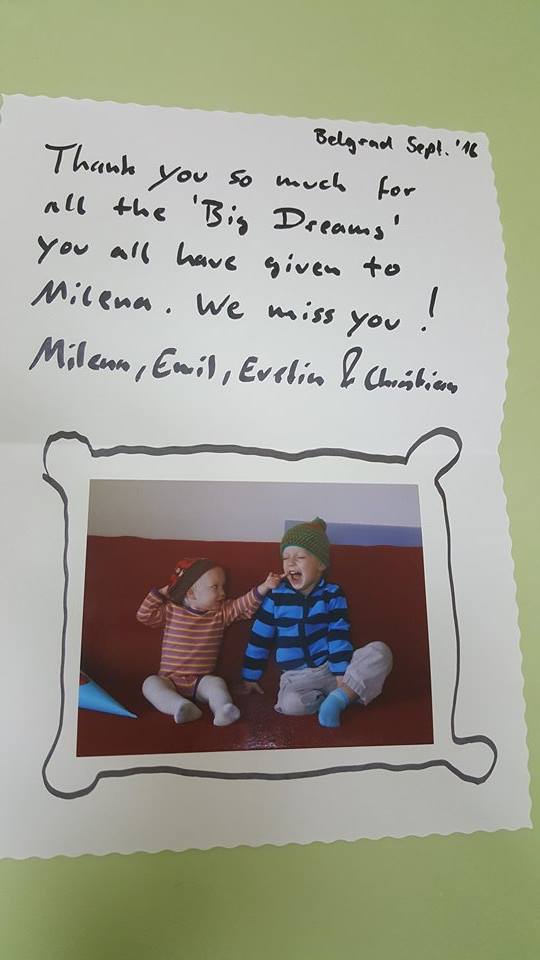 Belgrad Sept. '16
Thank you so much for
all the 'Big Dreams'
you all have given to
Milena. We miss you!
Milena, Emil, Evelin & Christian